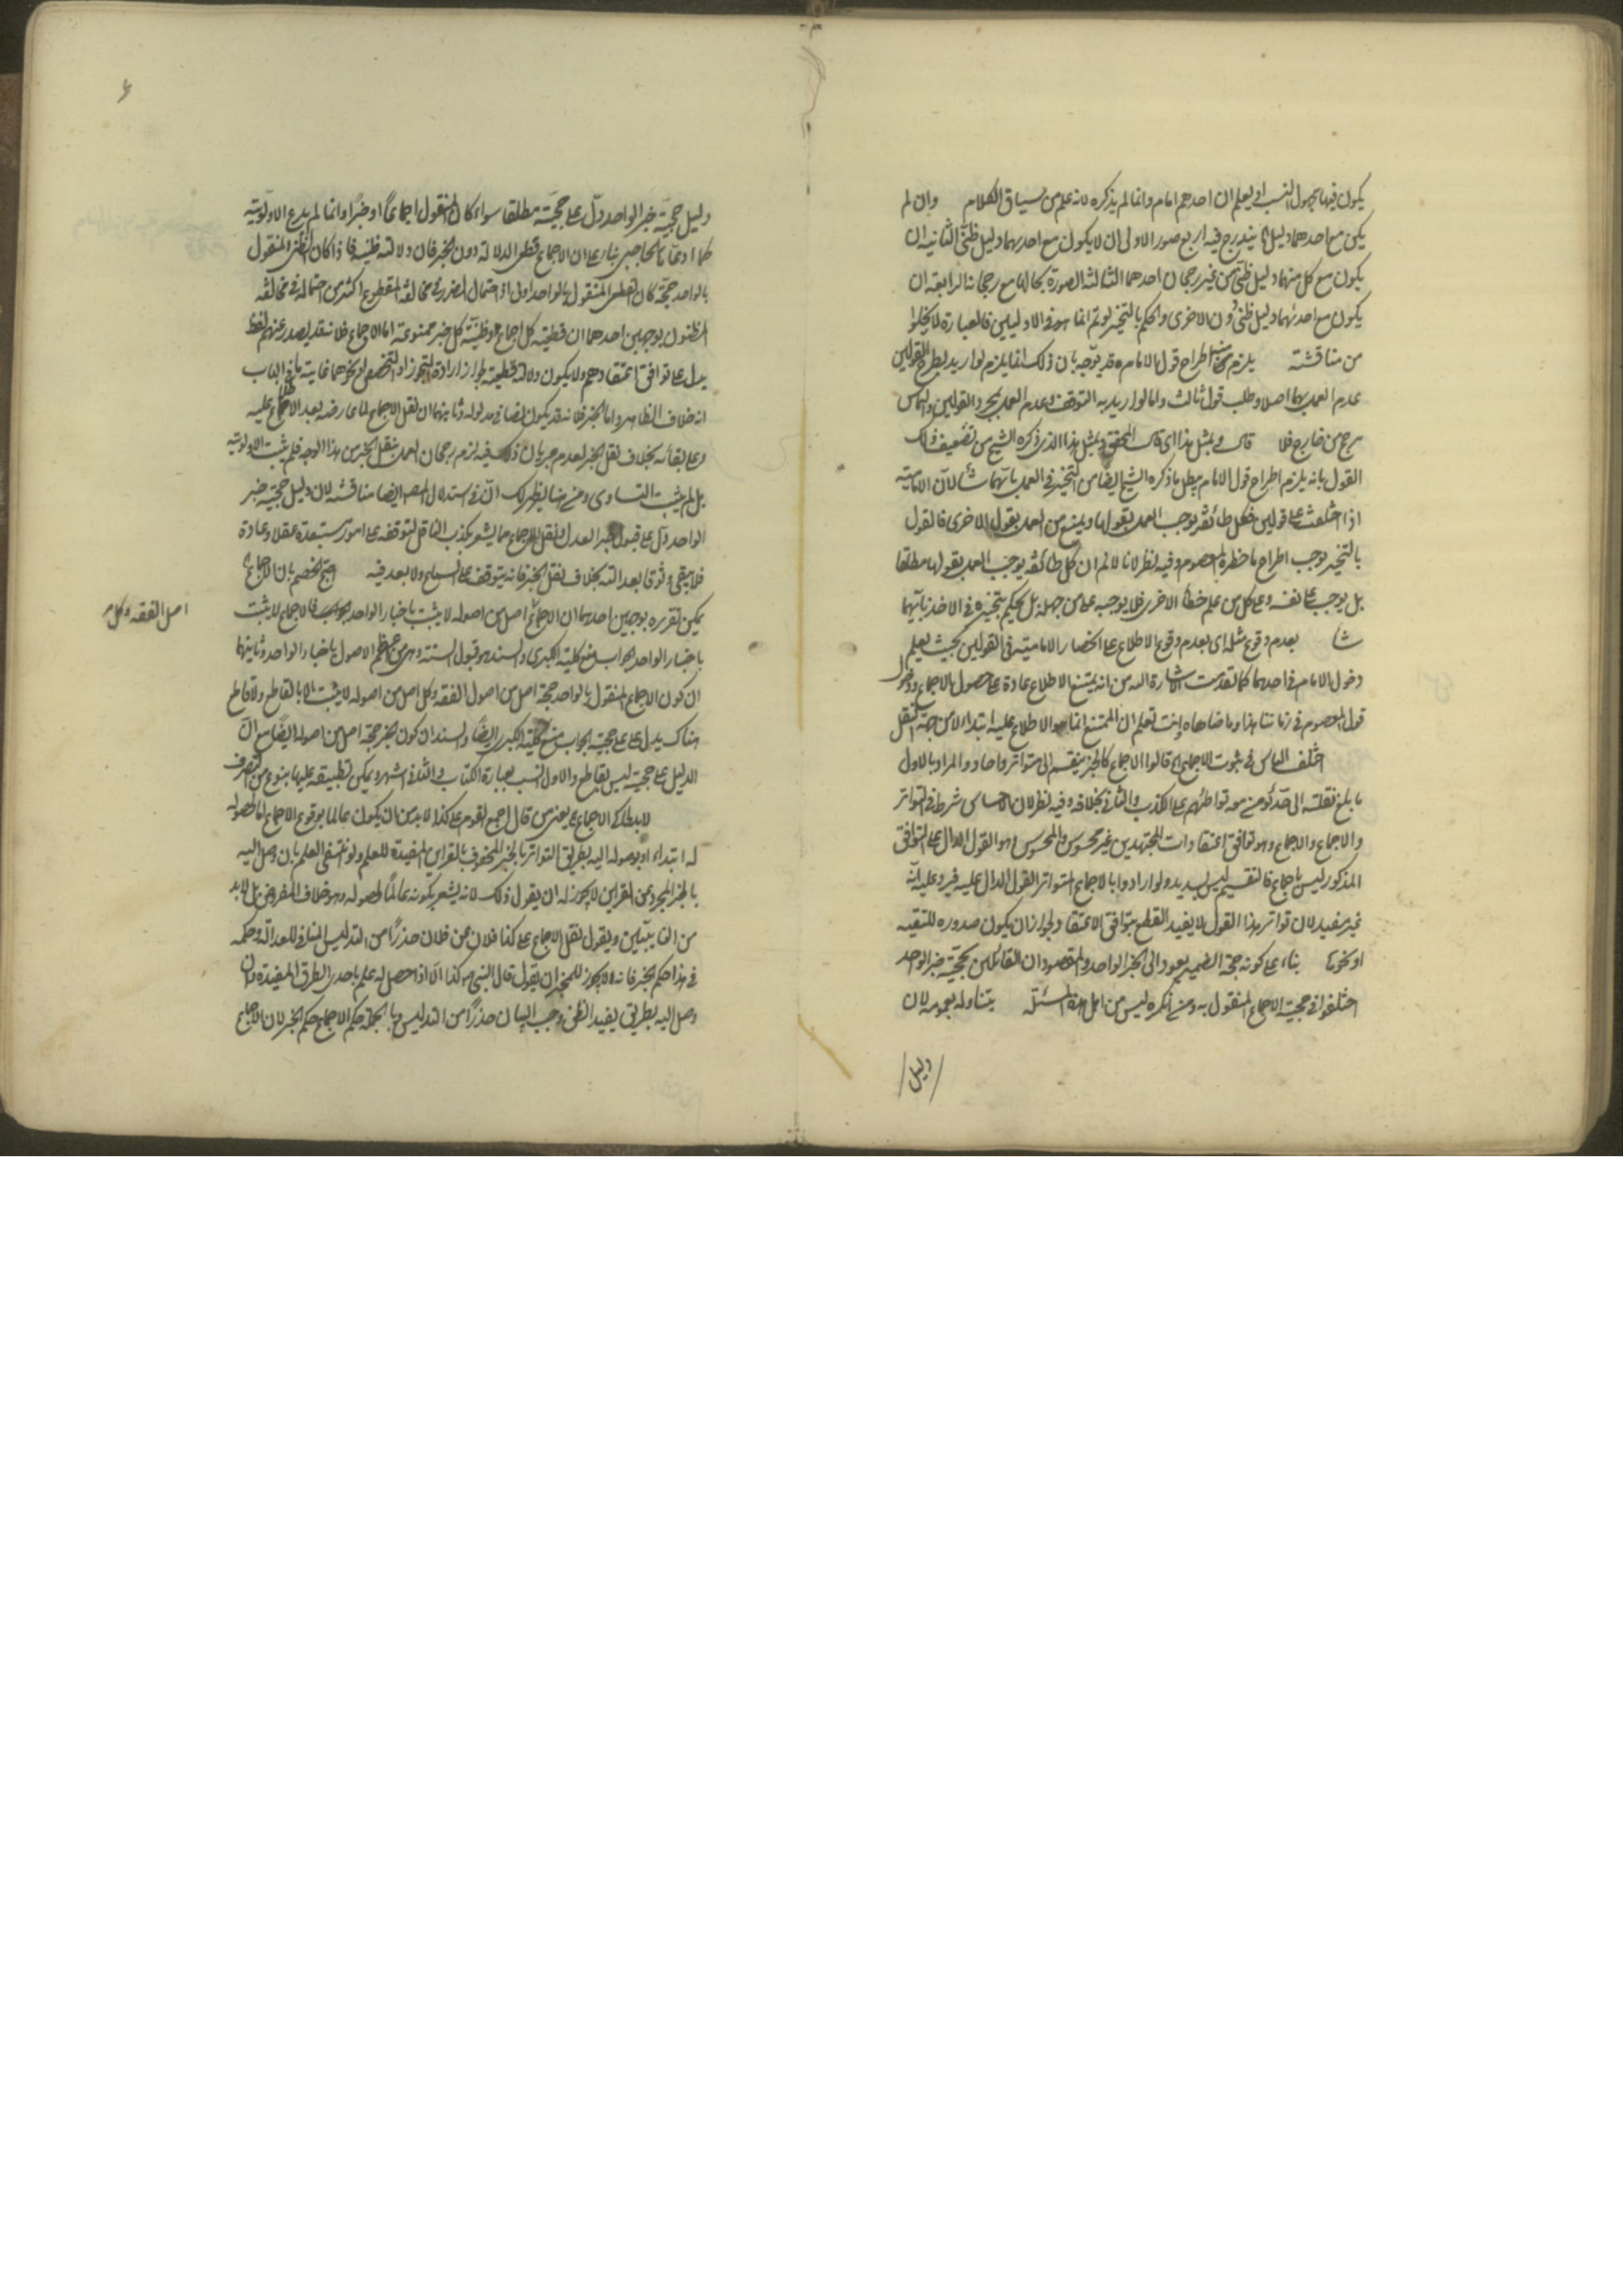 يكون فيها مجهول النسب او يعلم ان احدهم امام وانما لم يذكره لانه علم من سياق الكلام وان لم
يكن مع احدهما دليل يندرج فيه اربع صور الاولى ان لا يكون مع احدهما دليل ظنى الثانية ان
يكون مع كل منهما دليل ظنى من غير رجحان احدهما الثالثة الصورة بحالها مع رجحان الرابعة ان
يكون مع احدهما دليل ظنى دون الاخرى والحكم بالتخيير لو تم انما هو فى الاوليين فالعبارة لا يخلوا
من مناقشة يلزم منه اطراح قول الامام قد يوجه بان ذلك انما يلزم لو اريد بطرح القولين
عدم العمل بهما اصلا وطلب قول ثالث واما لو اريد به التوقف وعدم العمل بمجرد القولين والتماس
مرجح من خارج فلا قال وبمثل هذا اى قال المحقق وبمثل هذا الذى ذكره الشيخ من تضعيف ذلك
القول بانه يلزم اطراح قول الامام يبطل ما ذكره الشيخ ايضا من التخيير فى العمل بايهما شاء لان الامامية
اذا اختلفت على قولين فكل طائفة يوجب العمل بقولها ويمنع من العمل بقول الاخرى فالقول
بالتخيير يوجب اطراح ما حظره المعصوم وفيه نظر لانا لا نم ان كل طائفة يوجب العمل بقولها مطلقا
بل يوجب على نفسه وعلى كل من علم خطأ الاخرى فلا يوجبه على من جهله بل يحكم بتخييره فى الاخذ بايهما
شا بعدم وقوع مثله اى بعدم وقوع الاطلاع على انحصار الامامية فى القولين بحيث يعلم
دخول الامام فى احدهما كما تقدمت الاشارة اليه من انه يمتنع الاطلاع عادة على حصول الاجماع ودخول
قول المعصوم فى زماننا هذا وما ضاهاه وانت تعلم ان الممتنع انما هو الاطلاع عليه ابتداء لا من جهة النقل
اختلف الناس فى ثبوت الاجماع قالوا الاجماع كالخبر ينقسم الى متواتر واحاد والمراد بالاول
ما بلغ نقلته الى حد يؤمن معه تواطئهم على الكذب والثانى بخلافه وفيه نظر لان الاحساس شرط فى التواتر
والاجماع والاجماع وهو توافق اعتقادات المجتهدين غير محسوس والمحسوس وهو القول الدال على التوافق
المذكور ليس باجماع فالتقسيم ليس بسديد ولو ارادوا بالاجماع المتواتر القول الدال عليه فيرد عليه انه
غير مفيد لان تواتر هذا القول لا يفيد القطع بتوافق الاعتقاد لجواز ان يكون صدوره للتقية
او نحوها بناء على كونه حجة الضمير يعود الى الخبر الواحد والمقصود ان القائلين بحجية خبر الواحد
اختلفوا فى حجية الاجماع المنقول به ومن انكره ليس من اهل هذه المسئلة يتناوله بعمومه لان
دليل
دليل حجية خبر الواحد دل على حجيته مطلقا سواء كان المنقول اجماعا او خبرا وانما لم يدع الاولوية
كما ادعاها الحاجبى بناء على ان الاجماع قطعى الدلالة دون الخبر فان دلالته ظنية فاذا كان الظنى المنقول
بالواحد حجة كان القطعى المنقول بالواحد اولى اذ احتمال الضرر فى مخالفة المقطوع اكثر من احتماله فى مخالفة
المظنون بوجهين احدهما ان قطعية كل اجماع وظنية كل خبر ممنوعة اما الاجماع فلانه قد يصدر عنهم لفظ
يدل على توافق اعتقادهم ولا يكون دلالته قطعية لجواز ارادة التجوز او التخصيص او نحوهما غاية ما فى الباب
انه خلاف الظاهر واما الخبر فلانه قد يكون نصا فى مدلوله وثانيهما ان نقل الاجماع لما عارضه بعد الاطلاع عليه
وعلى بقائه بخلاف نقل الخبر لعدم جريان ذلك فيه لزم رجحان العمل بنقل الخبر من هذا الوجه فلم يثبت الاولوية
بل لم يثبت التساوى ومن هنا يظهر لك ان فى استدلال المص ايضا مناقشة لان دليل حجية خبر
الواحد دل على قبول خبر العدل ونقل الاجماع مما يشعر بكذب الناقل لتوقفه على امور مستبعدة عقلا وعادة
فلا يبقى وثوق بعدالته بخلاف نقل الخبر فانه يتوقف على السماع ولا بعد فيه احتج الخصم بان الاجماع
يمكن تقريره بوجهين احدهما ان الاجماع اصل من اصوله لا يثبت باخبار الواحد فالاجماع لا يثبت
اصل الفقه وكل
باخبار الواحد الجواب منع كلية الكبرى والسند هو قبول السنة وهى من اعظم الاصول باخبار الواحد وثانيهما
ان كون الاجماع المنقول بالواحد حجة اصل من اصول الفقه وكل اصل من اصوله لا يثبت الا بالقاطع ولا قاطع
هناك يدل على حجيته الجواب منع كلية الكبرى ايضا والسند ان كون الخبر حجة اصل من اصوله ايضا مع ان
الدليل على حجيته ليس بقاطع والاول انسب بعبارة الكتاب والثانى اشهر ويمكن تطبيقه عليها بنوع من التصرف
لا بد لحاكى الاجماع يعنى من قال اجمع القوم على كذا لا بد من ان يكون عالما بوقوع الاجماع اما لحصوله
له ابتداء او بوصوله اليه بطريق التواتر او بالخبر المحفوف بالقراين المفيدة للعلم ولو انتفى العلم بان وصل اليه
بالخبر المجرد عن القراين لا يجوز له ان يقول ذلك لانه يشعر بكونه عالما لحصوله وهو خلاف المفروض بل لا بد
من ان يبين ويقول نقل الاجماع على كذا فلان عن فلان حذرا من التدليس المنافى للعدالة وحكمه
فى هذا حكم الخبر فانه لا يجوز للمخبر ان يقول قال النبى ص كذا الا اذا حصل له علم باحدى الطرق المفيدة وان
وصل اليه بطريق يفيد الظن وجب البيان حذرا من التدليس وبالجملة حكم الاجماع حكم الخبر لان الاجماع